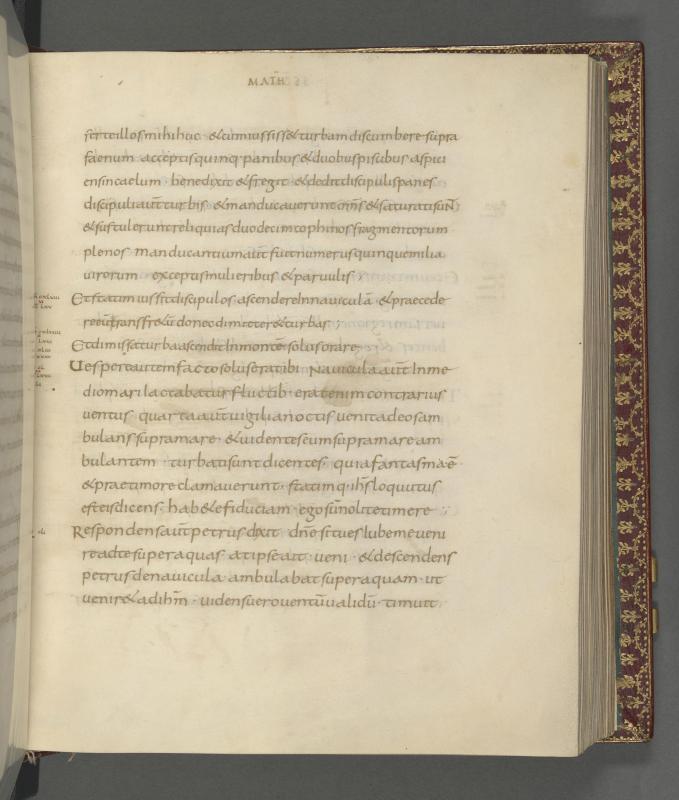 MATH
ferte illos mihi huc & cum iussiss& turbam discumbere supra
faenum acceptis quinq· panibus & duobus piscibus aspici
ens in caelum · benedixit & fregit · & dedit discipulis panes
discipuli aut̄ turbis · & manducaverunt om̄s & saturati sunt
& sustulerunt reliquias duodecim cophinos fragmentorum
plenos · manducantium aut̄ fuit numerus quinque milia
virorum exceptis mulieribus & parvulis ;
Et statim iussit discipulos ascendere In navicula & praecede
re eū trans fr&ū donec dimitter& turbas ;
Et dimissa turba ascendit In montē solus orare ;
Uespere autem facto solus erat ibi · Navicula aut̄ In me
dio mari lactabatur fluctib· erat enim contrarius
ventus · quarta aut̄ vigilia noctis venit ad eos am
bulans supra mare · & videntes eum supra mare am
bulantem · turbati sunt dicentes · quia fantasma ē
& prae timore clamaverunt · statimq· ihs̄ loquutus
est eis dicens · hab&e fiduciam · ego sū nolite timere ;
Respondens aut̄ petrus dixit · dn̄e si tu es Iube me veni
re ad te super aquas · at ipse ait · veni · & descendens
petrus de navicula · ambulabat super aquam · ut
venir& ad ihm̄ · videns uero ventū validū · timuit